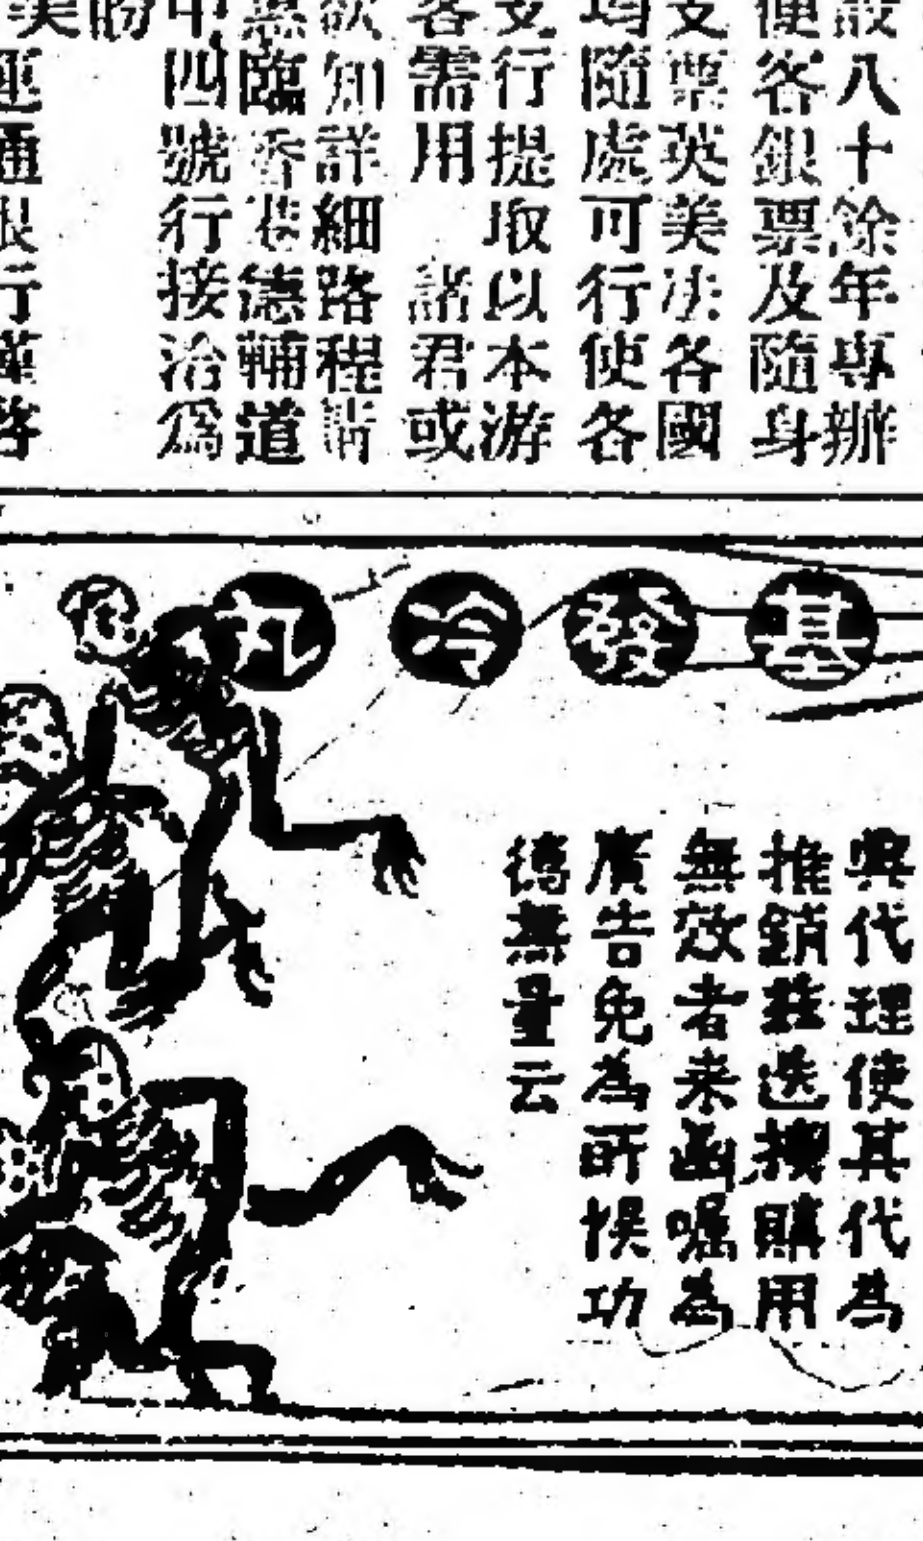 設八十餘年專辦
便客銀票及隨身
支票英美法各國
均隨處可行使各
支行提取以本游
客需用　諸君或
欲知詳細路程請
惠臨香港德輔道
中四號行接洽為
盼
美運通銀行謹啓
基發冷丸
代理使其代為
推銷茲迭撰購用
無效者来函嘱為
廣告免為所悮功
德無量云